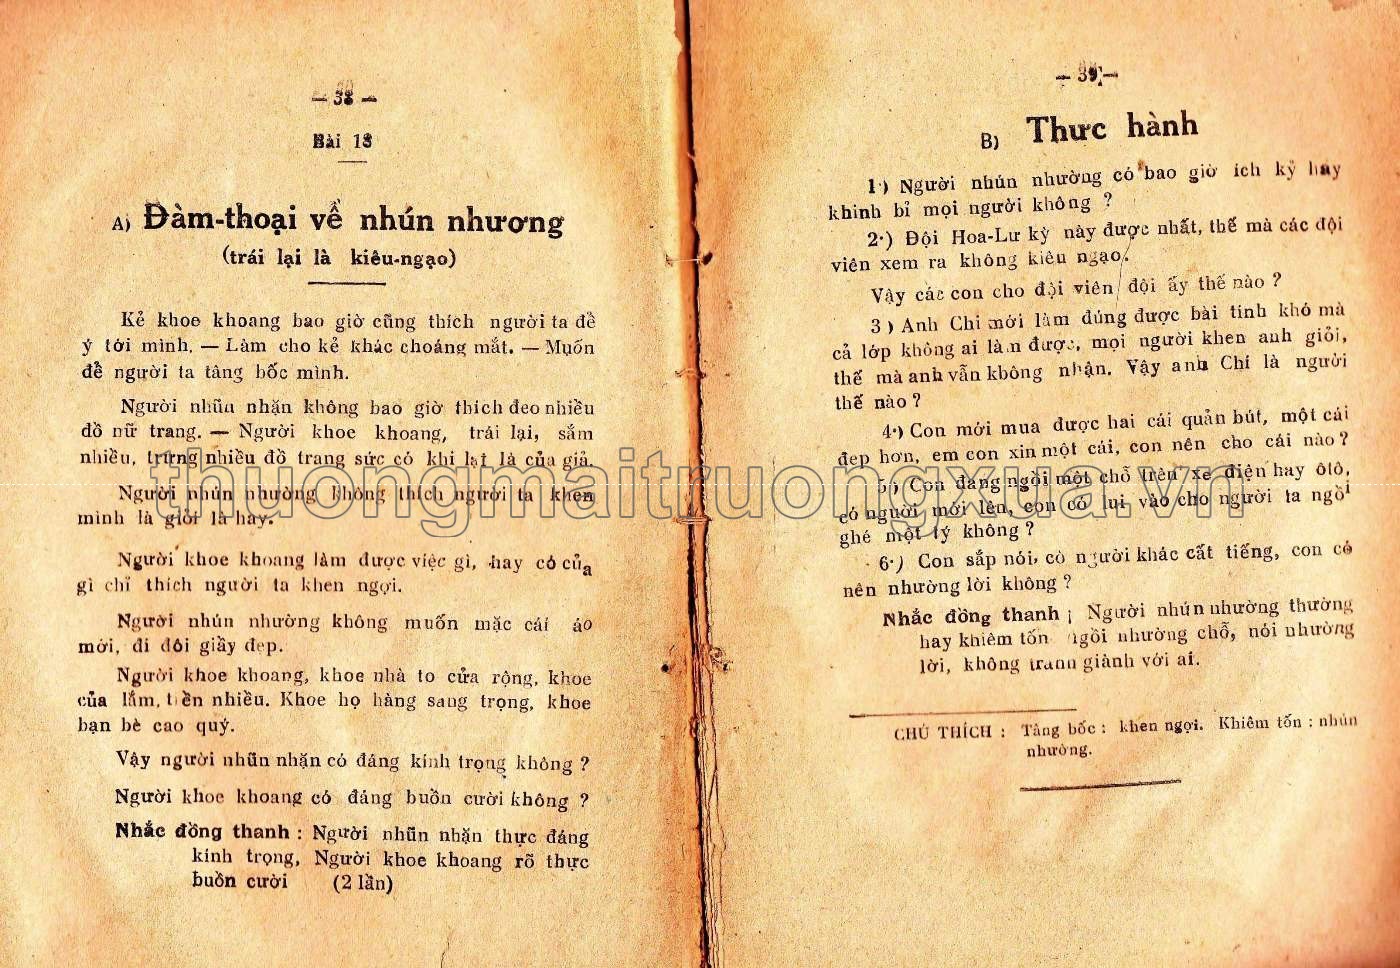 — 38 —
Bài 18
A) Đàm-thoại về nhún nhương
(trái lại là kiêu-ngạo)
Kẻ khoe khoang bao giờ cũng thích người ta để
ý tới mình. — Làm cho kẻ khác choáng mắt. — Muốn
để người ta tâng bốc mình.
Người nhũn nhặn không bao giờ thích đeo nhiều
đồ nữ trang. — Người khoe khoang, trái lại, sắm
nhiều, trưng nhiều đồ trang sức có khi lại là của giả.
Người nhún nhường không thích người ta khen
mình là giỏi là hay.
Người khoe khoang làm được việc gì, hay có của
gì chỉ thích người ta khen ngợi.
Người nhún nhường không muốn mặc cái áo
mới, đi đôi giầy đẹp.
Người khoe khoang, khoe nhà to cửa rộng, khoe
của lắm, tiền nhiều. Khoe họ hàng sang trọng, khoe
bạn bè cao quý.
Vậy người nhũn nhặn có đáng kính trọng không ?
Người khoe khoang có đáng buồn cười không ?
Nhắc đồng thanh : Người nhũn nhặn thực đáng
kính trọng, Người khoe khoang rõ thực
buồn cười (2 lần)
— 39 —
B) Thực hành
1·) Người nhún nhường có bao giờ ích kỷ hay
khinh bỉ mọi người không ?
2·) Đội Hoa-Lư kỳ này được nhất, thế mà các đội
viên xem ra không kiêu ngạo.
Vậy các con cho đội viên đội ấy thế nào ?
3 ) Anh Chi mới làm đúng được bài tính khó mà
cả lớp không ai làm được, mọi người khen anh giỏi,
thế mà anh vẫn không nhận. Vậy anh Chi là người
thế nào ?
4·) Con mới mua được hai cái quản bút, một cái
đẹp hơn, em con xin một cái, con nên cho cái nào ?
5·) Con đang ngồi một chỗ trên xe điện hay ôtô,
có người mới lên, con có lui vào cho người ta ngồi
ghé một tý không ?
6·) Con sắp nói, có người khác cất tiếng, con có
nên nhường lời không ?
Nhắc đồng thanh ; Người nhún nhường thường
hay khiêm tốn ngồi nhường chỗ, nói nhường
lời, không tranh giành với ai.
CHÚ THÍCH : Tâng bốc : khen ngợi. Khiêm tốn : nhún
nhường.
thuongmaitruongxua.vn